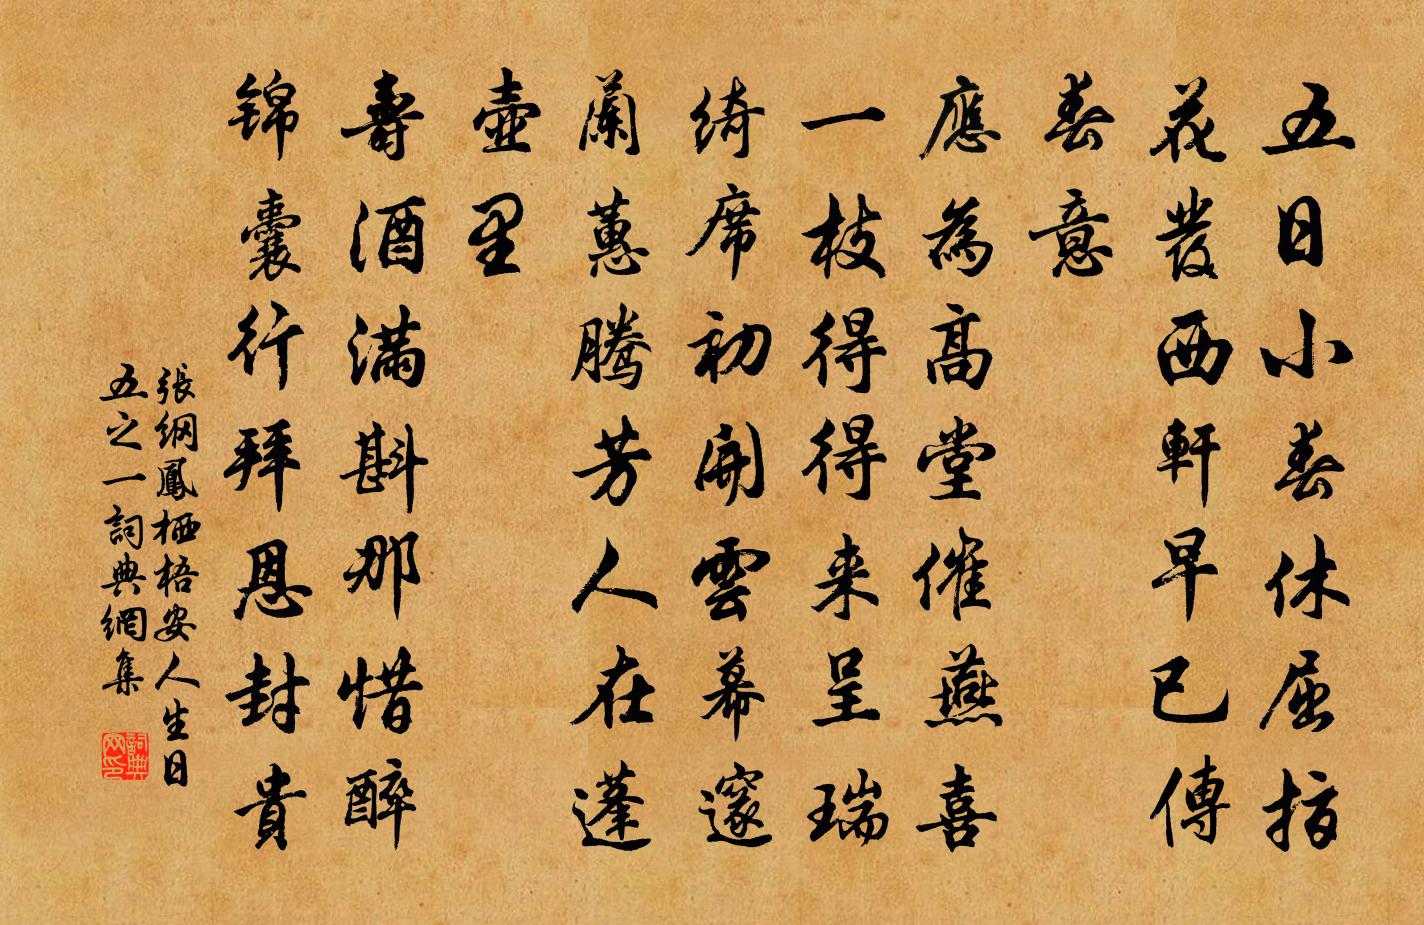 五日小春休屈指
花發西軒早已傳
春意
應為高堂催燕喜
一枝得得来呈瑞
綺席初開雲幕邃
蘭蕙騰芳人在蓬
壺里
壽酒滿斟那惜醉
锦囊行拜恩封貴
張綱鳳栖梧安人生日
五之一詞典網集
詞典网印